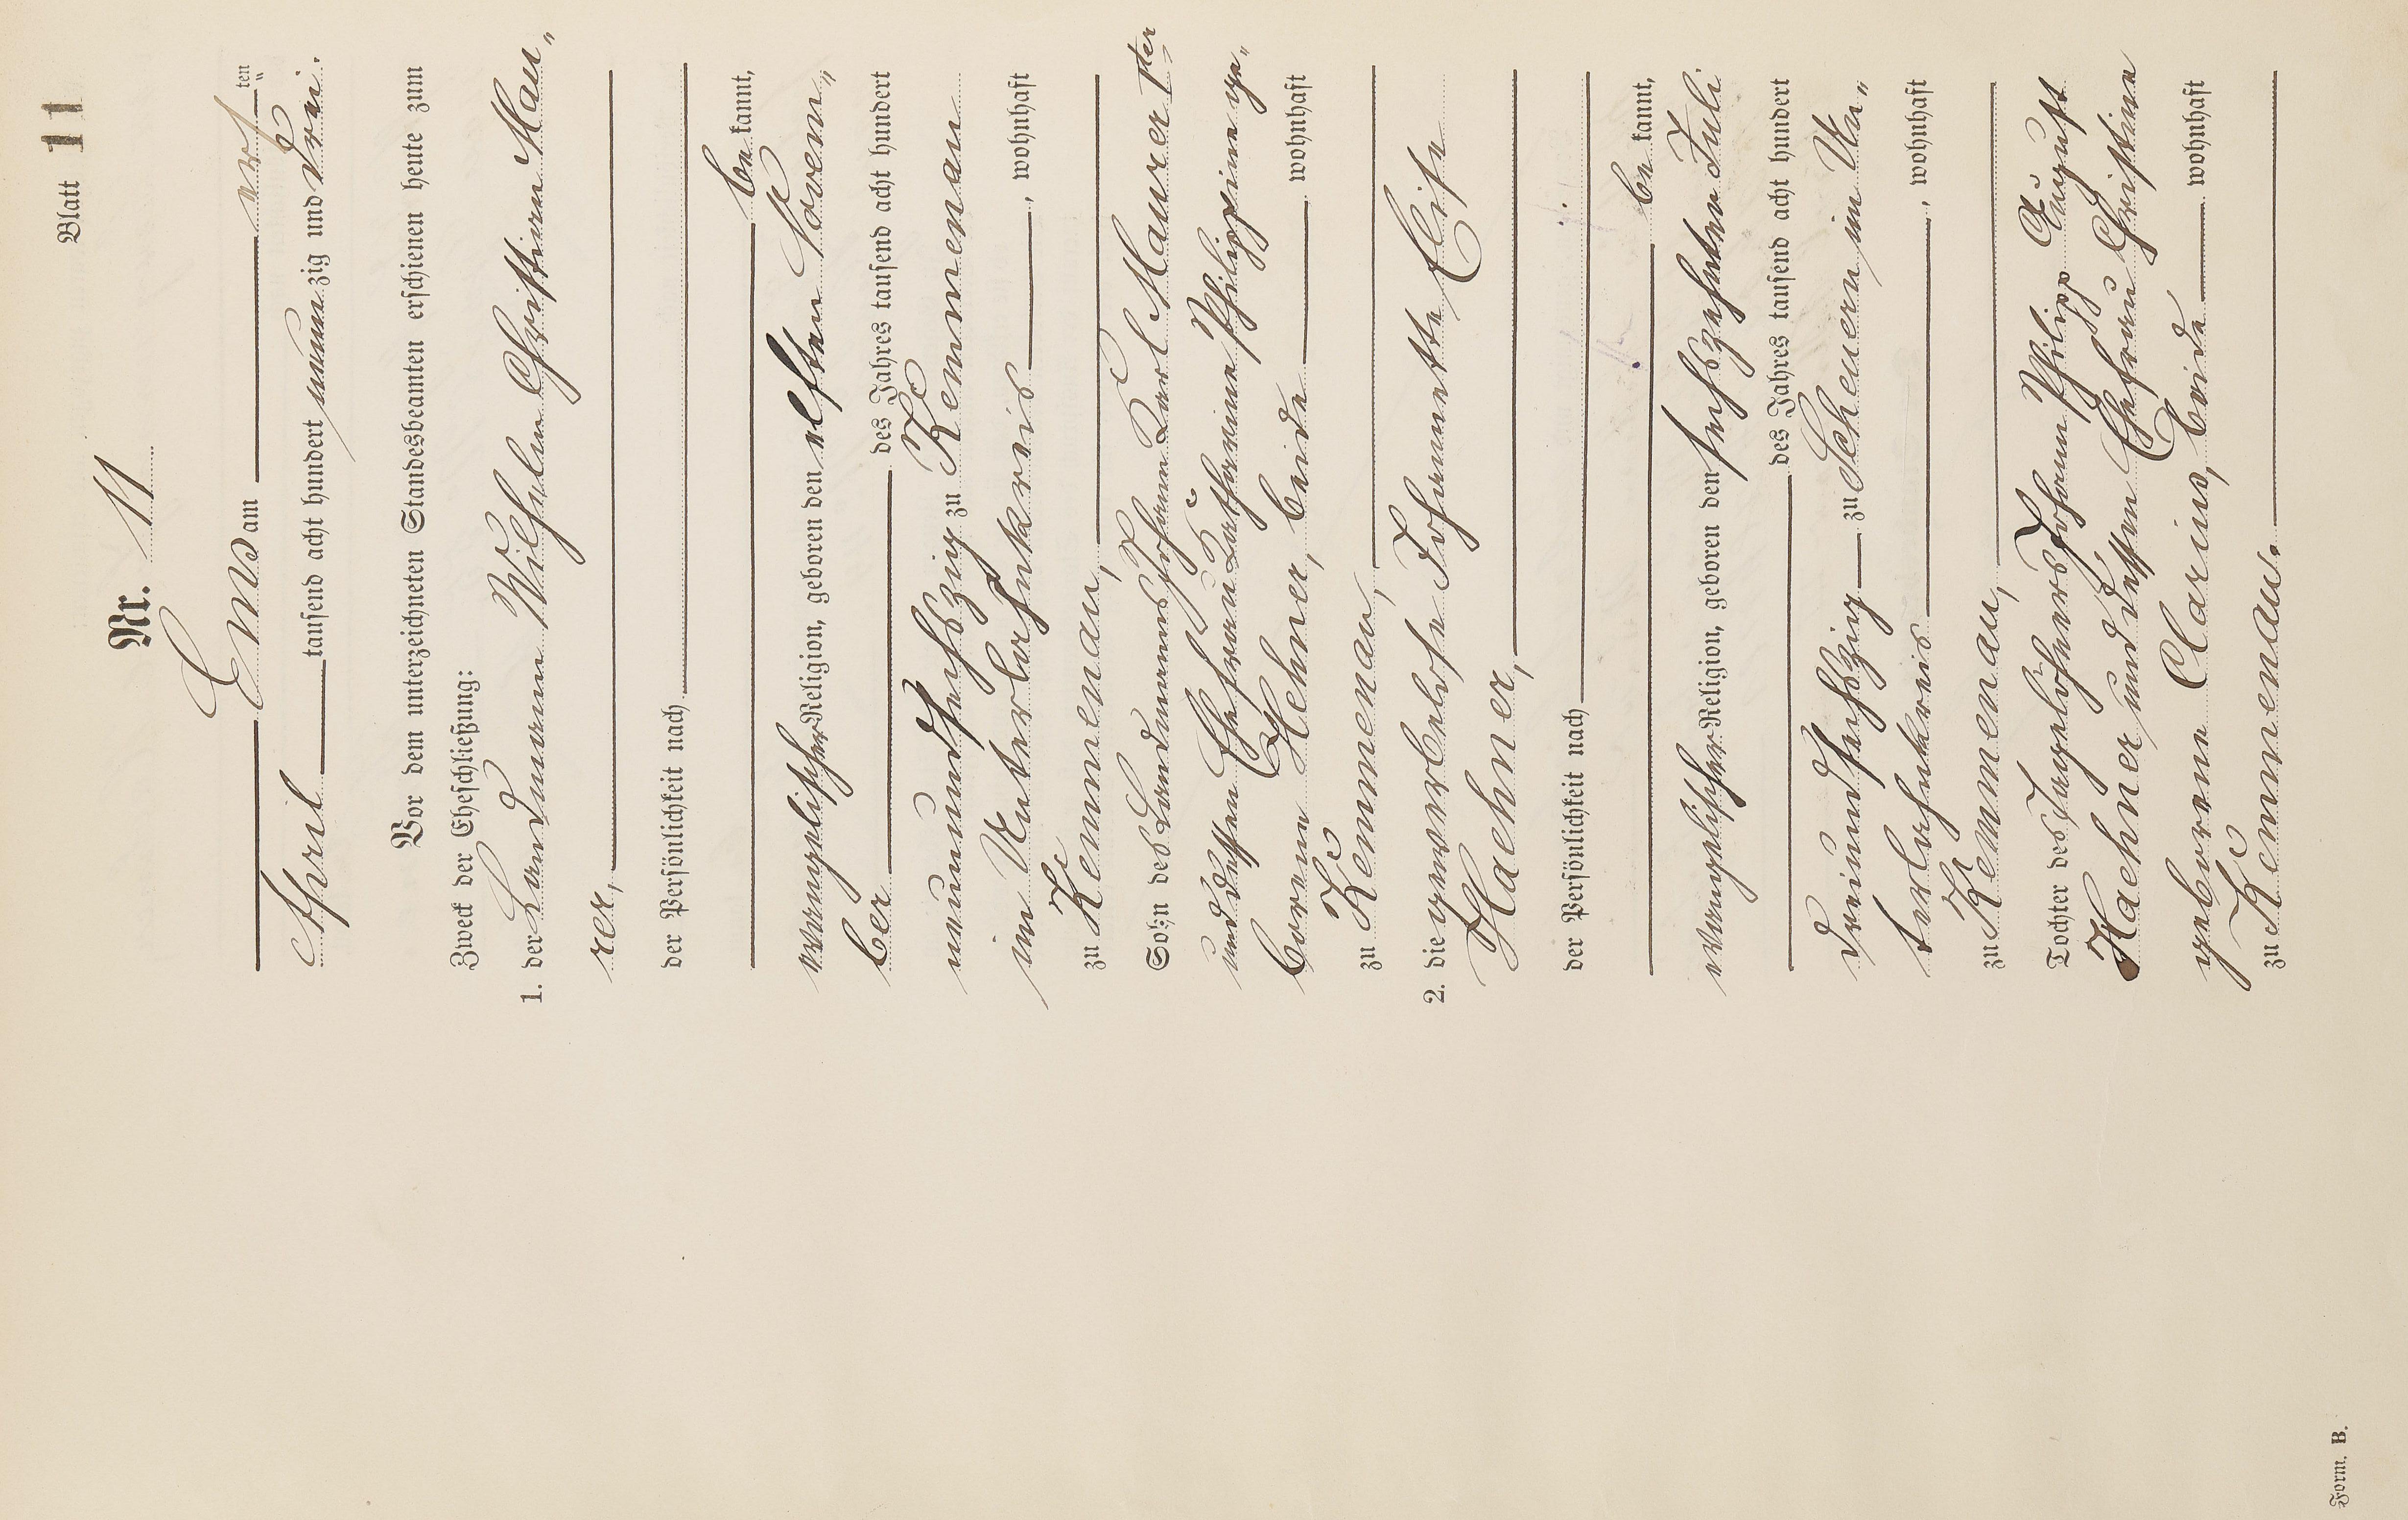 Blatt 11
Nr. 11
Ems am ersten
April tausend acht hundert neunzig und drei.
Vor dem unterzeichneten Standesbeamten erschienen heute zum
Zweck der Eheschließung:
1. der Landmann Wilhelm Christian Mau„
rer,
der Persönlichkeit nach
be kannt,
evangelischer Religion, geboren den elften Novem„
ber des Jahres tausend acht hundert
neunundsechszig zu Kemmenau
im Unterlahnkreis, wohnhaft
zu Kemmenau,
Sohn des Landmanns Johann Karl Maurer 1ster
und dessen Ehefrau Katharine Philippine ge„
borene Hehner, beide wohnhaft
zu Kemmenau,
2. die gewerbelose Johannette Elise
Haehner,
der Persönlichkeit nach
be kannt,
evangelischer Religion, geboren den sechszehnten Juli
des Jahres tausend acht hundert
dreiundsechszig zu Scheuern im Un„
terlahnkreis, wohnhaft
zu Kemmenau,
Tochter des Tagelöhners Johann Philipp August
Haehner und dessen Ehefrau Christine
geborene Clarius, beide wohnhaft
zu Kemmenau.
Form. B.